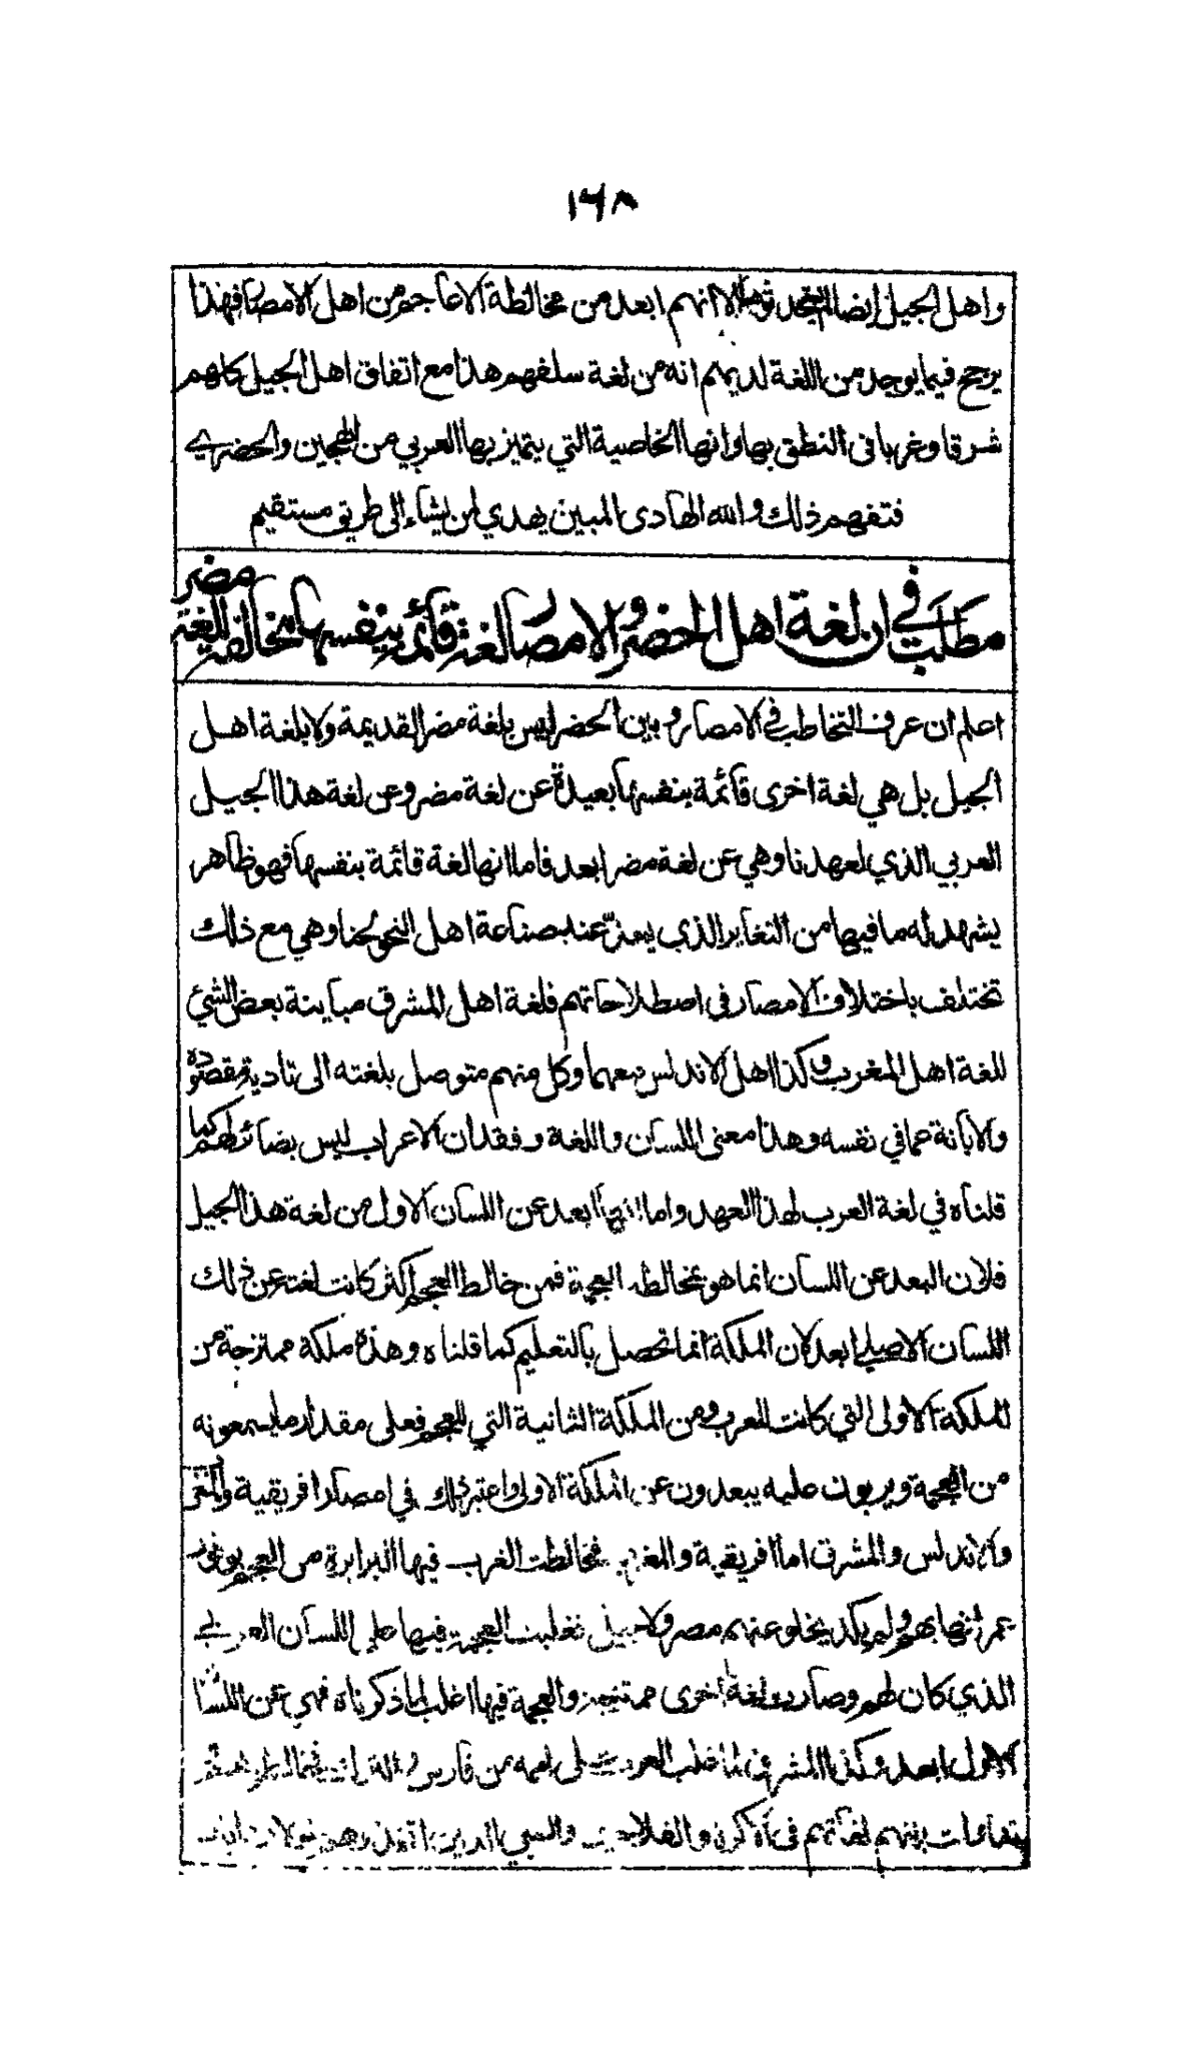 ١٦٨
واهل الجيل ايضا لم يحدثوها لانهم ابعد من مخالطة الاعاجم من اهل الامصار فهذا
يرجح فيما يوجد من اللغة لديهم انه من لغة سلفهم هذا مع اتفاق اهل الجيل كلهم
شرقا وغربا فى النطق بها وانها الخاصية التي يتميز بها العربي من الهجين والحضري
فتفهم ذلك والله الهادى المبين يهدي من يشاء الى طريق مستقيم
مطلب في ان لغة اهل الحضر والامصار لغة قائمة بنفسها مخالفة للغة مضر
اعلم ان عرف التخاطب في الامصار وبين الحضر ليس بلغة مضر القديمة ولا بلغة اهل
الجيل بل هي لغة اخرى قائمة بنفسها بعيدة عن لغة مضر وعن لغة هذا الجيل
العربي الذي لعهدنا وهي عن لغة مضر ابعد فاما انها لغة قائمة بنفسها فهو ظاهر
يشهد له ما فيها من التغاير الذي يعدّ عند صناعة اهل النحو لحنا وهي مع ذلك
تختلف باختلاف الامصار في اصطلاحاتهم فلغة اهل المشرق مباينة بعض الشئ
للغة اهل المغرب وكذا اهل الاندلس معهما وكل منهم متوصل بلغته الى تادية مقصوده
والابانة عما في نفسه وهذا معنى اللسان واللغة وفقدان الاعراب ليس بضائر لهم كما
قلناه في لغة العرب لهذا العهد واما انها ابعد عن اللسان الاول من لغة هذا الجيل
فلان البعد عن اللسان انما هو بمخالطة العجمة فمن خالط العجم اكثر كانت لغته عن ذلك
اللسان الاصلي ابعد لان الملكة انما تحصل بالتعليم كما قلناه وهذه ملكة ممتزجة من
الملكة الاولى التي كانت للعرب ومن الملكة الثانية التي للعجم فعلى مقدار ما يسمعونه
من العجمة ويربون عليه يبعدون عن الملكة الاولى واعتبر ذلك في امصار افريقية والمغرب
والاندلس والمشرق اما افريقية والمغرب فخالطت العرب فيها البرابرة من العجم بوفور
عمرانها بهم ولم يكد يخلو عنهم مصر ولا جيل فغلبت العجمة فيها على اللسان العربي
الذي كان لهم وصارت لغة اخرى ممتزجة والعجمة فيها اغلب لما ذكرناه فهي عن اللسان
الاول ابعد وكذا المشرق لما غلب العرب على امم من فارس
لغاتهم فى الاكرة والفلاحين والسبي الذين اتخذوهم خولا